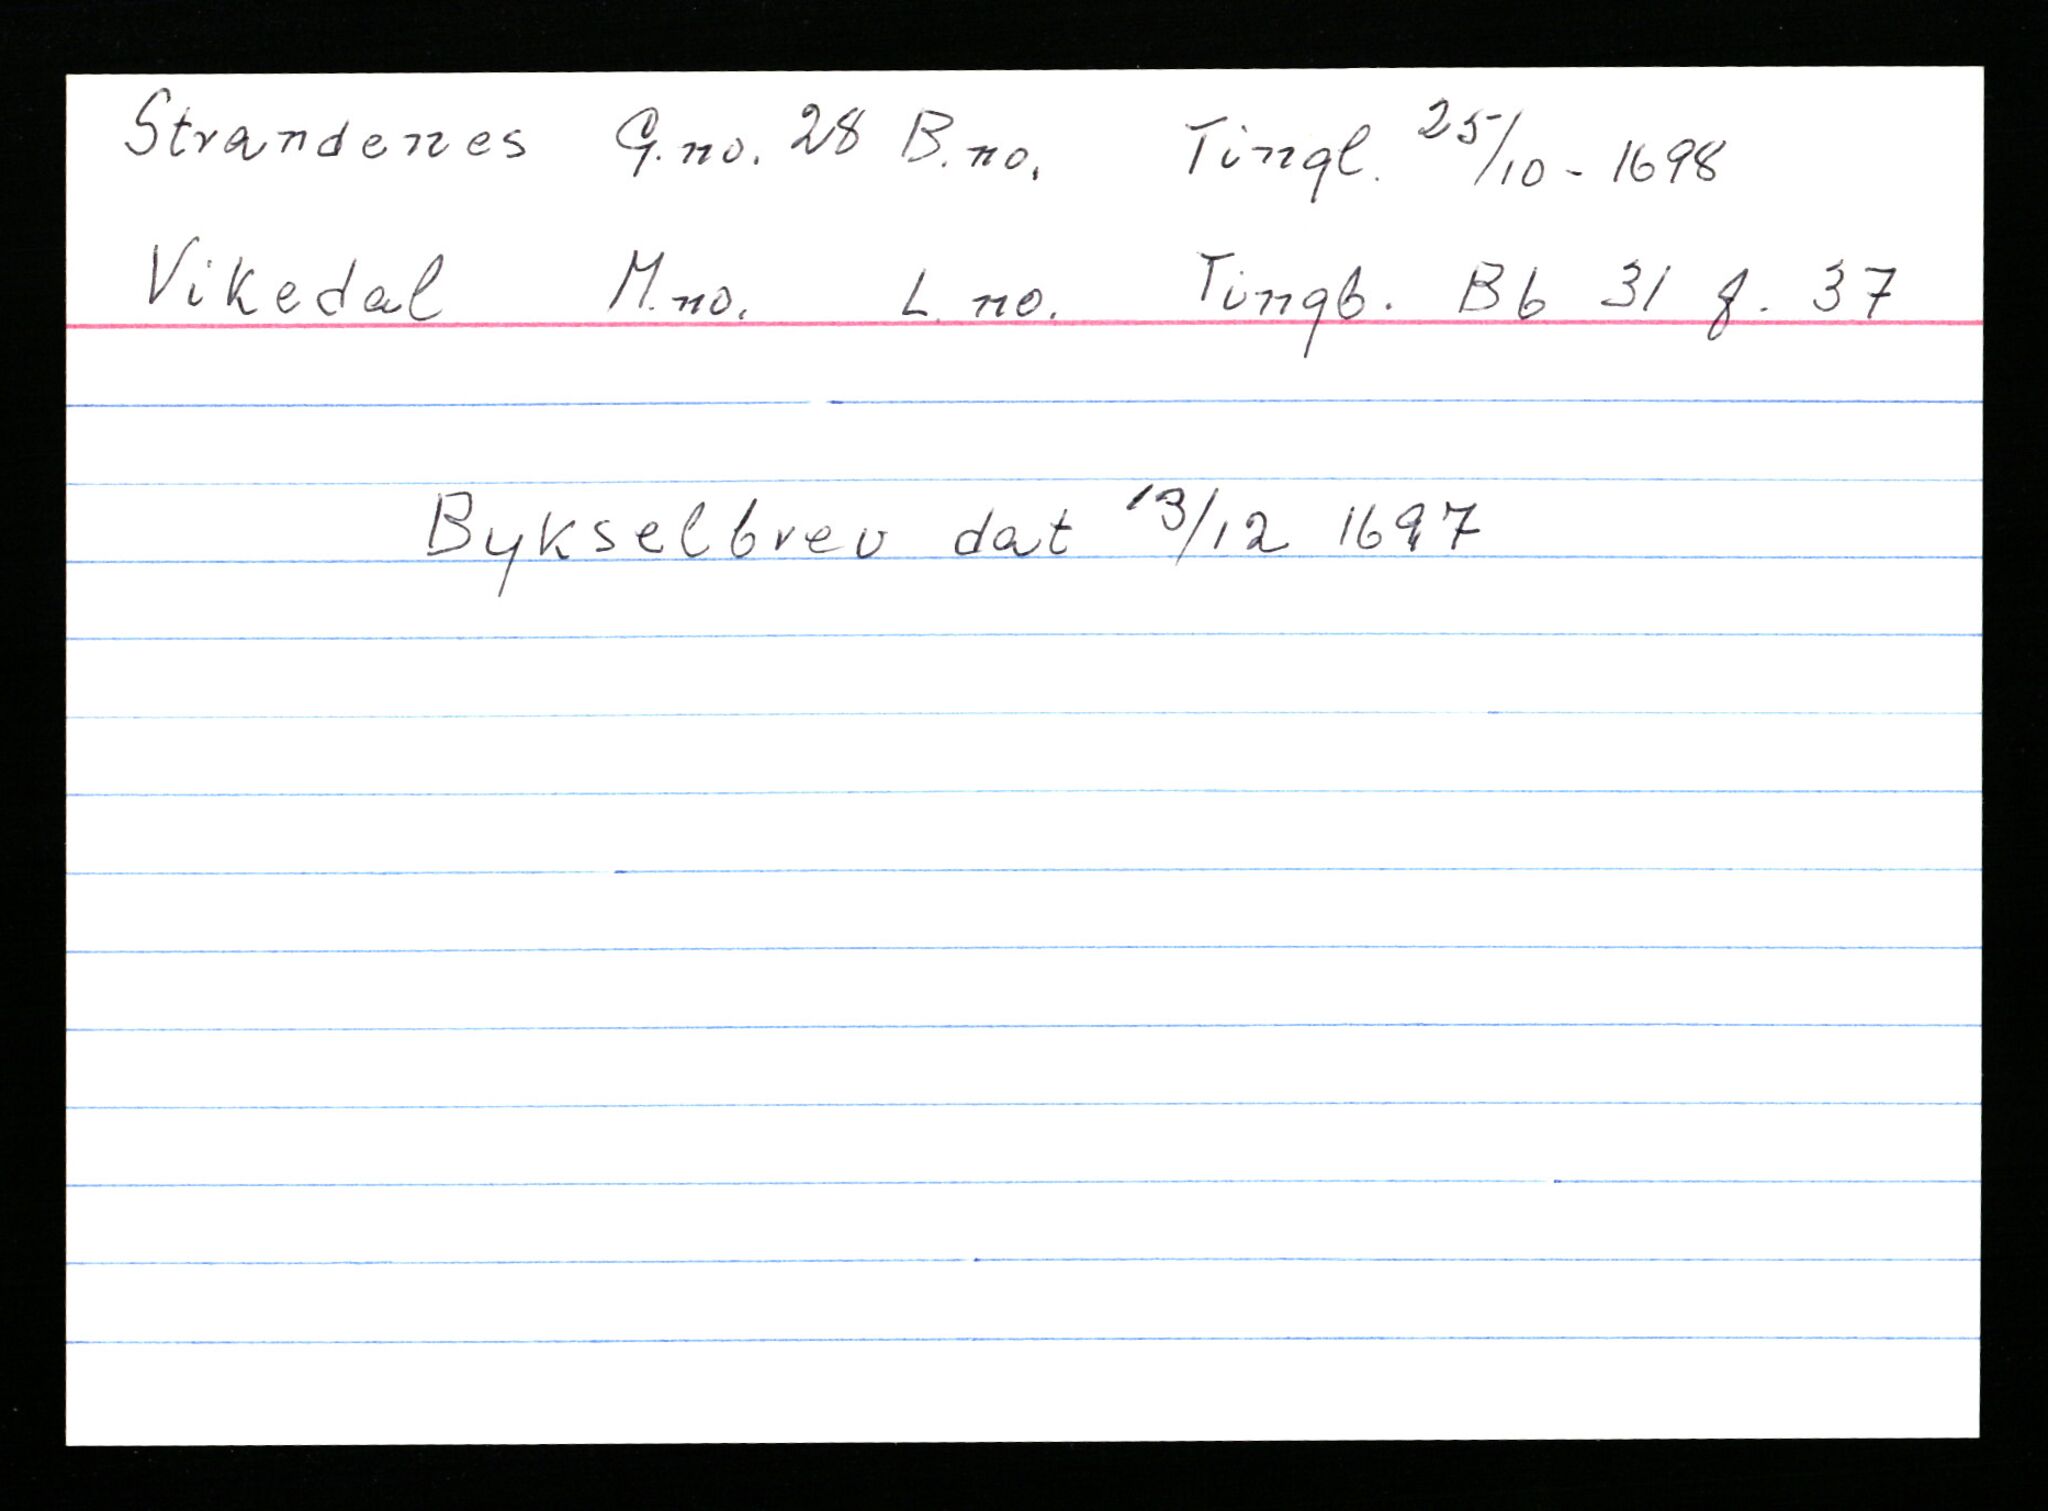 Strandenes G.no. 28 B.no. Tingl. 25/10 - 1698
Vikedal M.no. L.no. Tingb. Bb 31 f. 37
Bykselbrev dat 13/12 1697